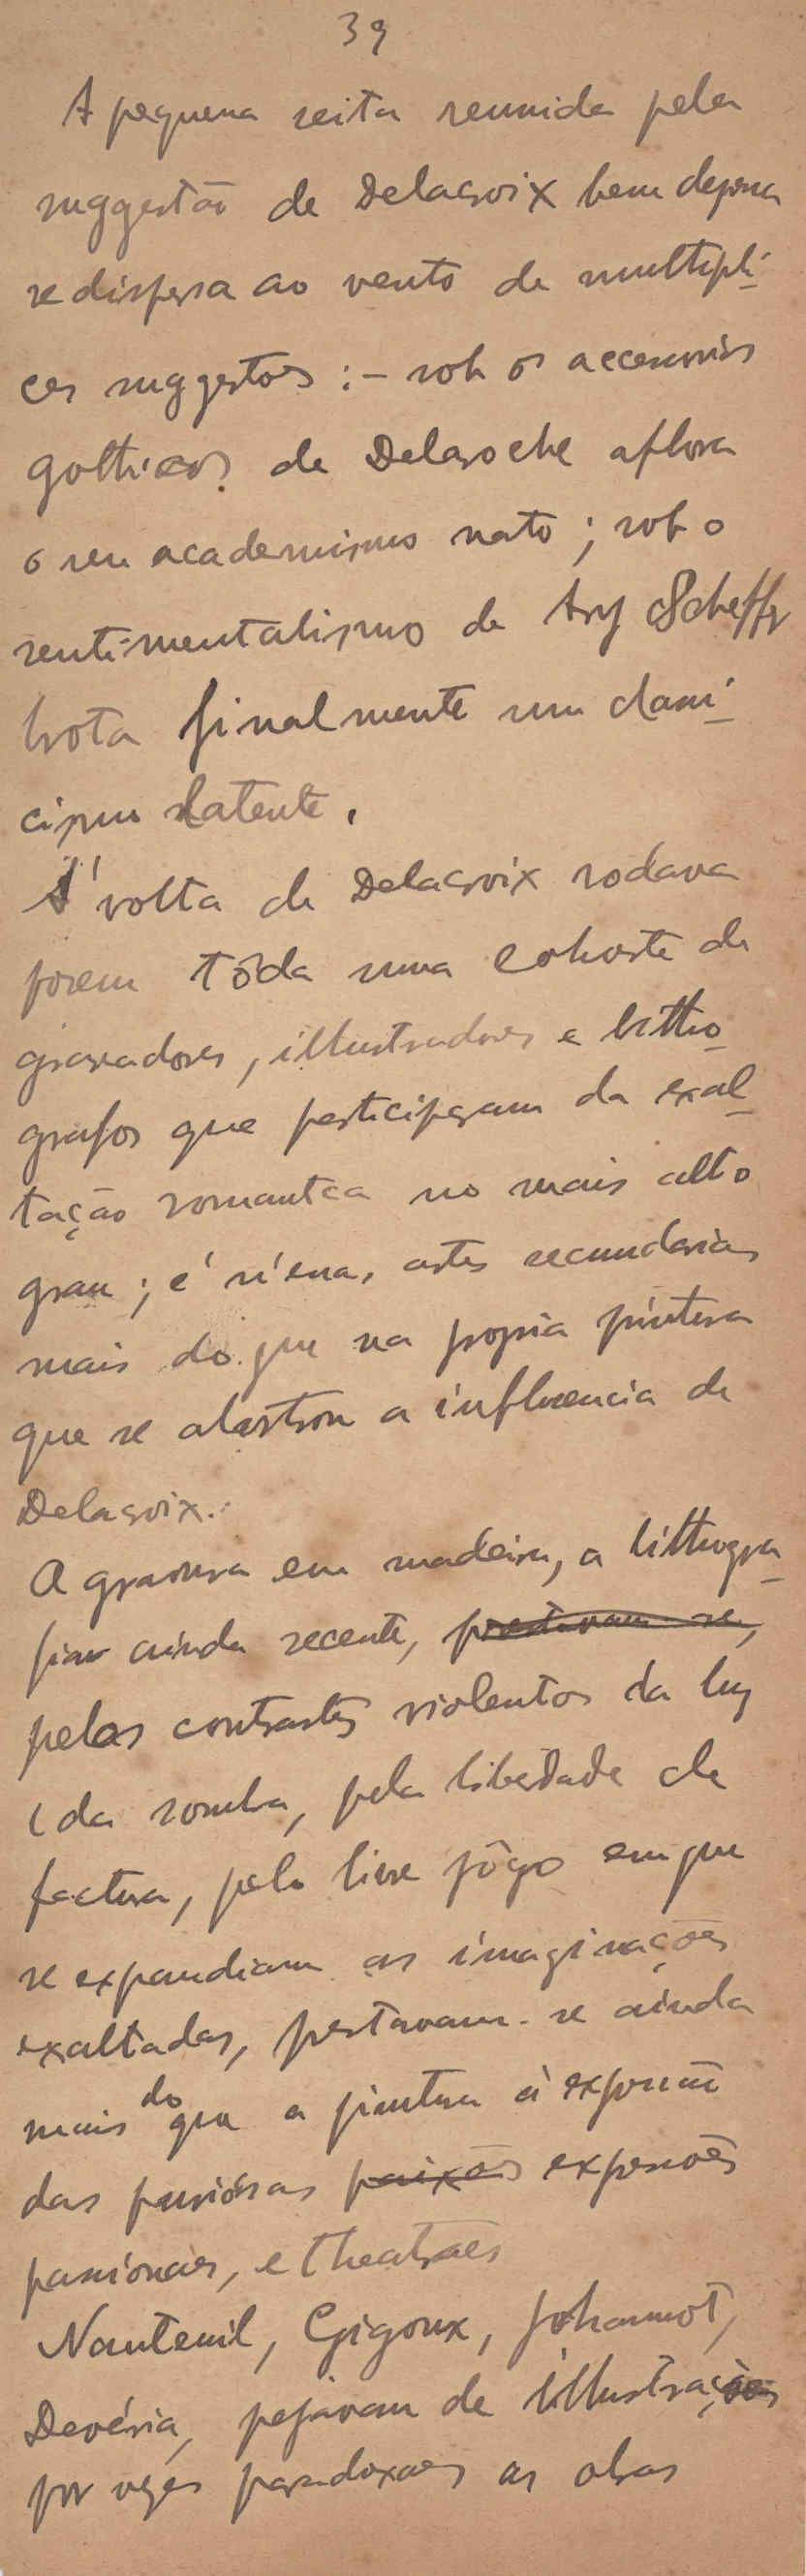 39
A pequena seita reunida pela
suggestão de Delacroix bem depressa
se dispersa ao vento de multipli-
ces suggestoes :- sob os accessorios
gothicos de Delaroche aflora
o seu academismo nato ; sob o
sentimentalismo de Ary Scheffer
brota finalmente um classi-
cismo latente .
A' volta de Delacroix rodava
porem tôda uma cohorte de
gravadores, illustradores e litho-
grafos que participaram da exal-
tação romantica no mais alto
grau ; e' n'essas artes secundarias
mais do que na propria pintura
que se alastrou a influencia de
Delacroix.
A gravura em madeira, a lithogra-
fia ainda recente, prestavam-se,
pelos contrastes violentos da luz
e da sombra, pela liberdade de
factura, pelo livre jôgo em que
se expandiam as imaginações
exaltadas, prestavam-se ainda
mais do que a pintura á expressão
das furiósas paixões expressões
passionaes, e theatraes
Nanteuil, Gigoux, Johannot,
Devéria, pejavam de illustrações
por vezes paradoxaes as obras